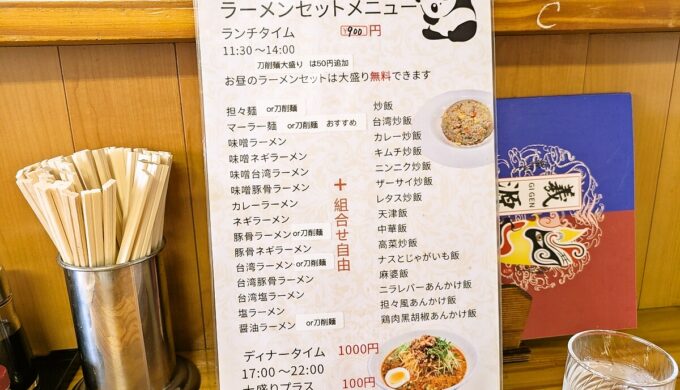 ラーメンセットメニュー
ランチタイム 900 円
11:30 ～14:00
刀削麺大盛り は50円追加
お昼のラーメンセットは大盛り無料できます
担々麺 or刀削麺
マーラー麺 or刀削麺 おすすめ
味噌ラーメン
味噌ネギラーメン
味噌台湾ラーメン
味噌豚骨ラーメン
カレーラーメン
ネギラーメン
豚骨ラーメン or刀削麺
豚骨ネギラーメン
台湾ラーメン or刀削麺
台湾豚骨ラーメン
台湾塩ラーメン
塩ラーメン
醤油ラーメン or刀削麺
＋組合せ自由
炒飯
台湾炒飯
カレー炒飯
キムチ炒飯
ニンニク炒飯
ザーサイ炒飯
レタス炒飯
天津飯
中華飯
高菜炒飯
ナスとじゃがいも飯
麻婆飯
ニラレバーあんかけ飯
担々風あんかけ飯
鶏肉黒胡椒あんかけ飯
ディナータイム 1000円
17:00 ～22:00
大盛りプラス 100円
義源
GI GEN